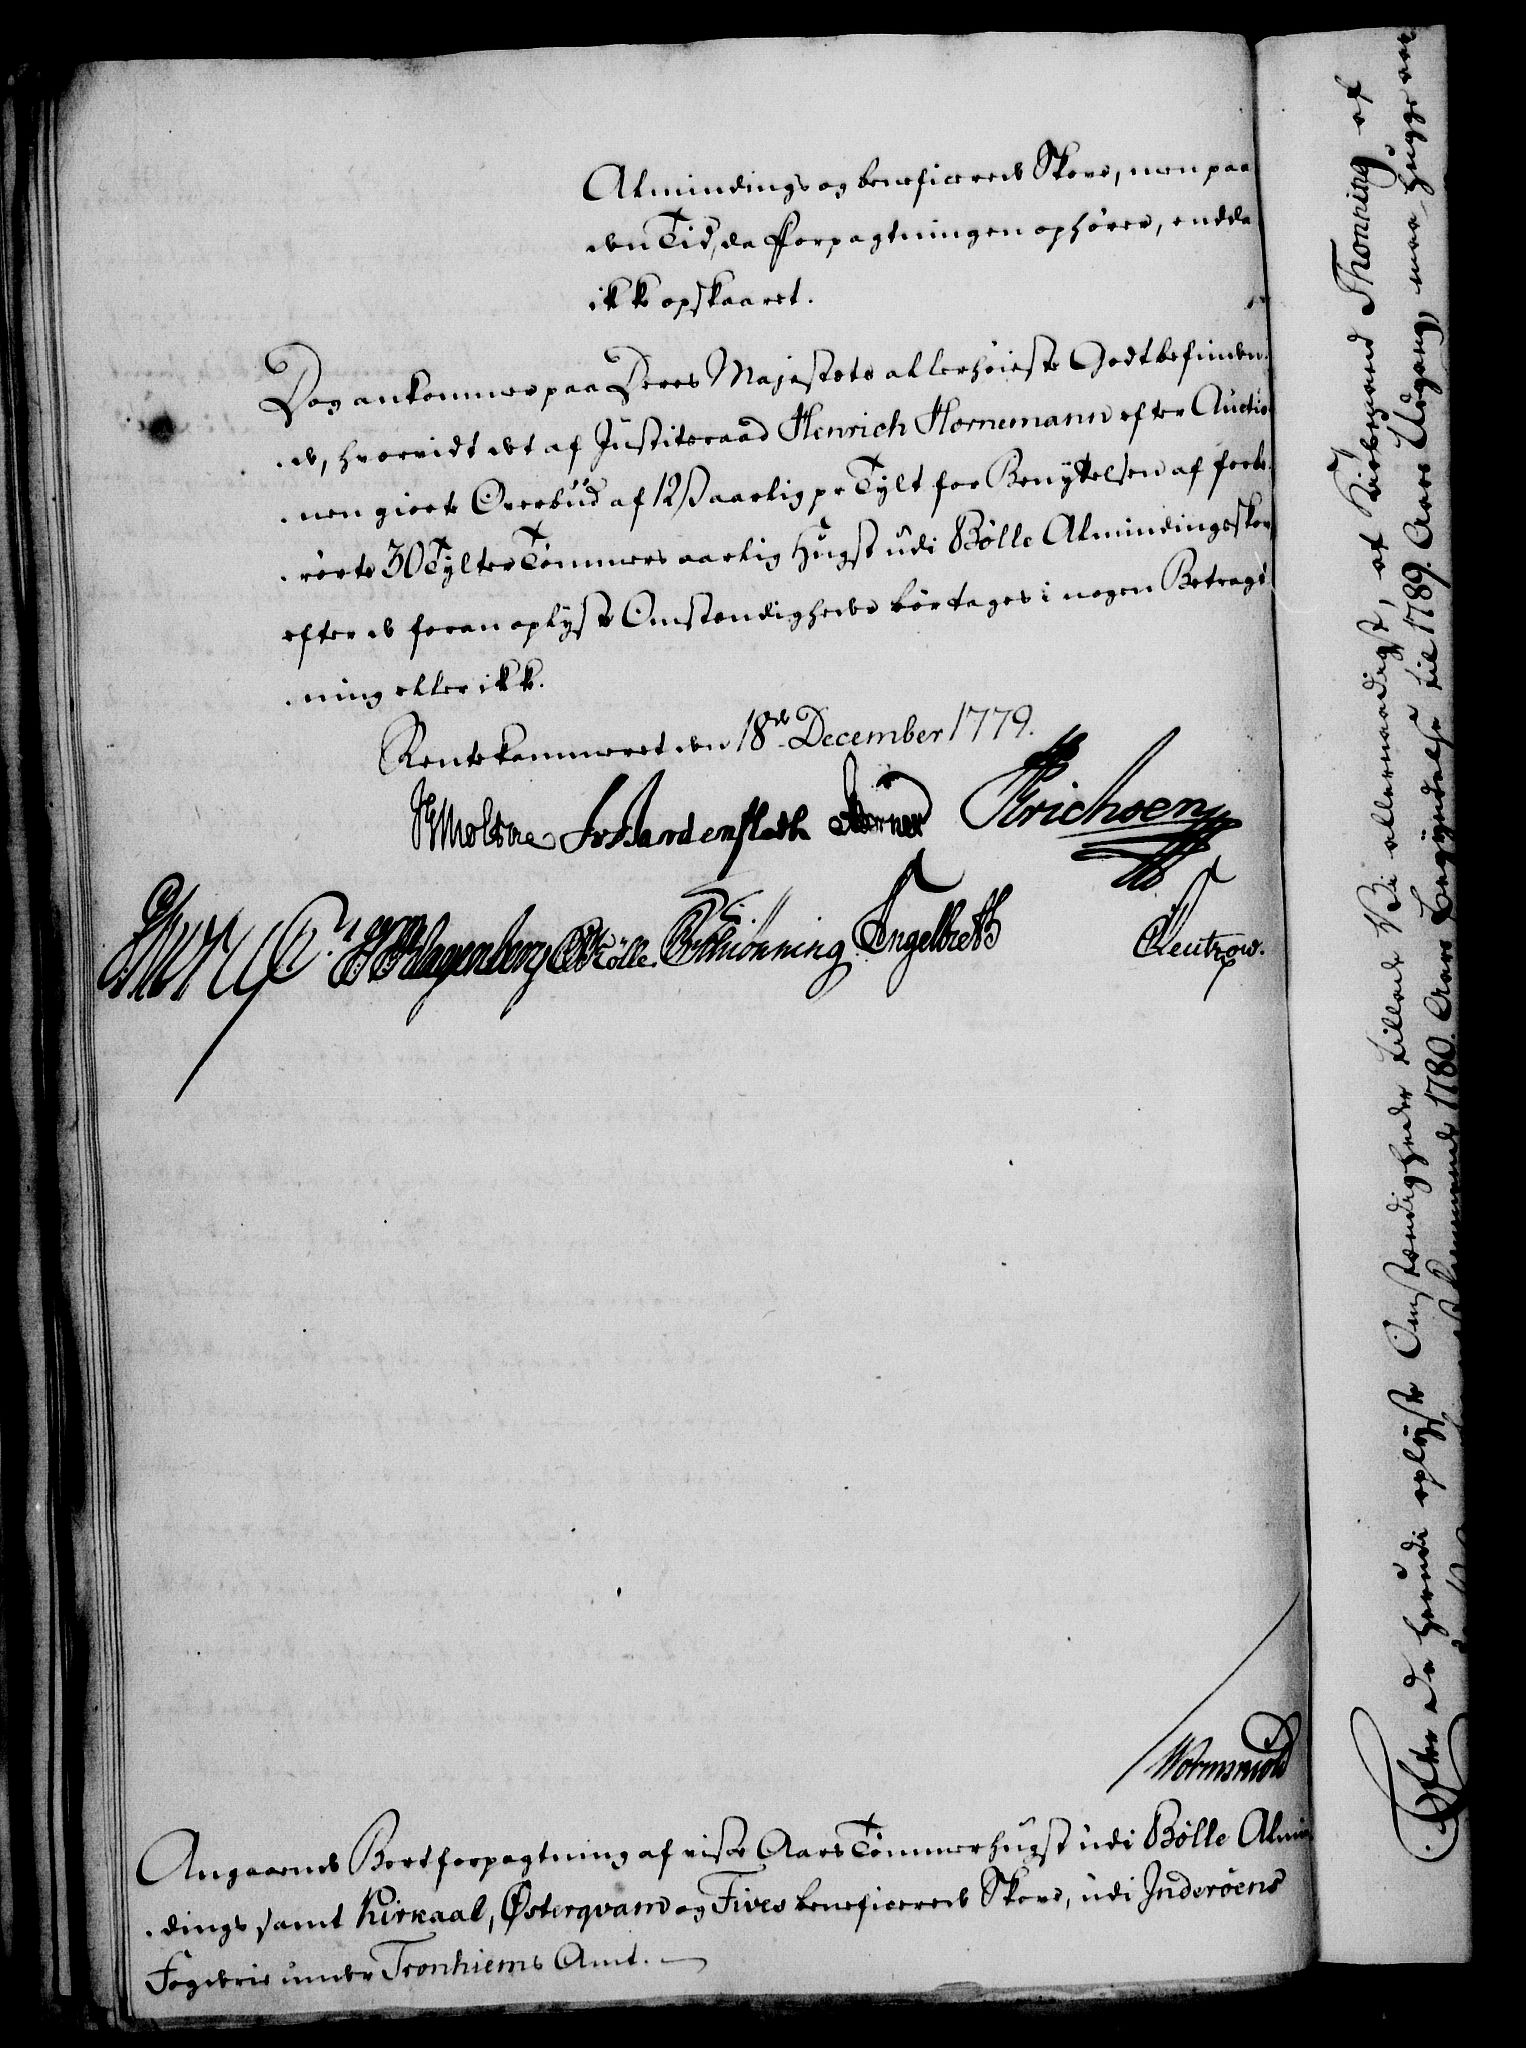 Almindings og beneficerede Skove, men paa
den Tid, da Forpagtningen ophører, endda
ikke opskaaret.
Dog ankommer paa Deres Majestets allerhøieste Godtbefinden-
-de, hvorvidt det af Justitsraad Henrich Hornemann efter Auctio-
-nen giorte Overbud af 12 ß aarlig pr Tylt for Benyttelsen af forbe-
-rørte 30 Tylter Tømmers aarlig Hugst udi Bølle Almindingsskov
efter de foran oplyste Omstændigheder bør tages i nogen Betragt-
-ning eller ikke.
Rentekammeret den 18de December 1779.
Hardenfleth Erichsen
Klagenberg Schiønning Engelbreth Leutzow.
Wormskiold
Angaaende Bortforpagtning af visse Aars Tømmerhugst udi Bølle Almin-
-dings samt Kirkaal, Østerqvam og Fives beneficerede Skove, udi Inderøens
Fogderie under Tronhiems Amt.
Efter de herudi oplyste Omstændigheder tillade Vi allernaadigst, at Kiøbmand Thonning af
1780. Aars Begyndelse til 1789. Aars Udgang, maa hugge aar